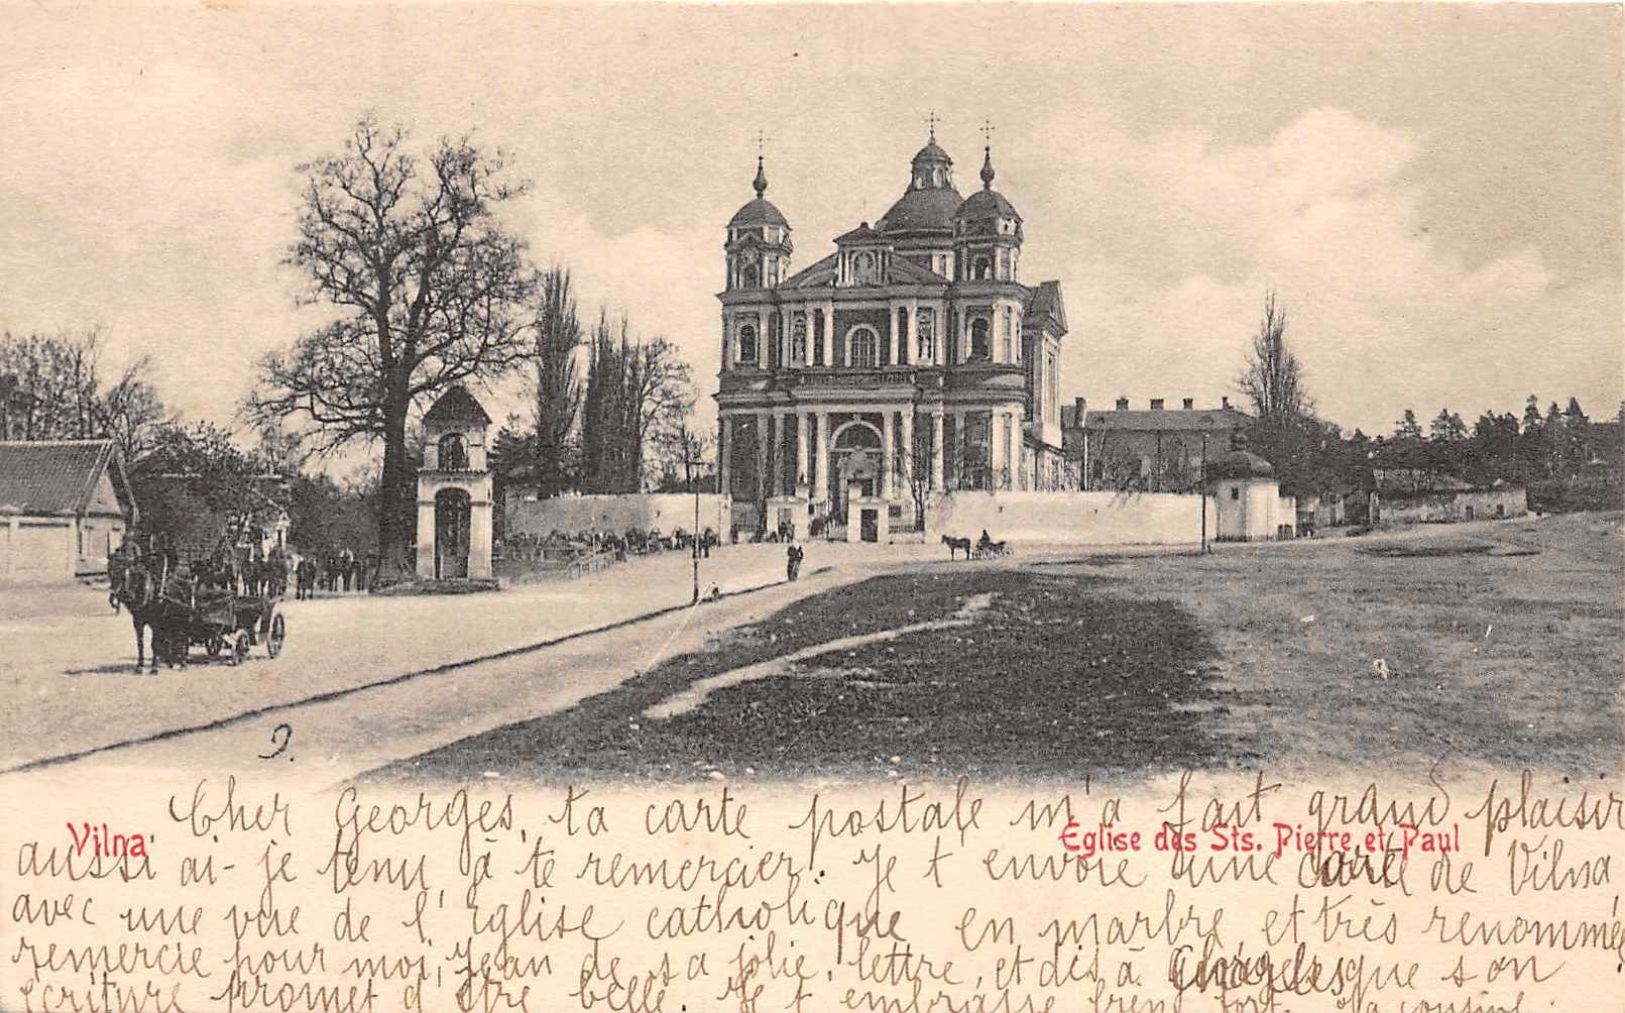 Vilna.
Eglise des Sts. Pierre et Paul
Cher Georges, ta carte postale m'a fait grand plaisir
aussi ai-je tenu à te remercier. Je t envoie une carte de Vilna,
avec une vue de l'Eglise catholique en marbre, et très renommée
remercie pour moi, Jean de sa jolie lettre, et dis à Charles que son
ecriture promet d'être belle. Je t embrasse bien fort. ta cousine.